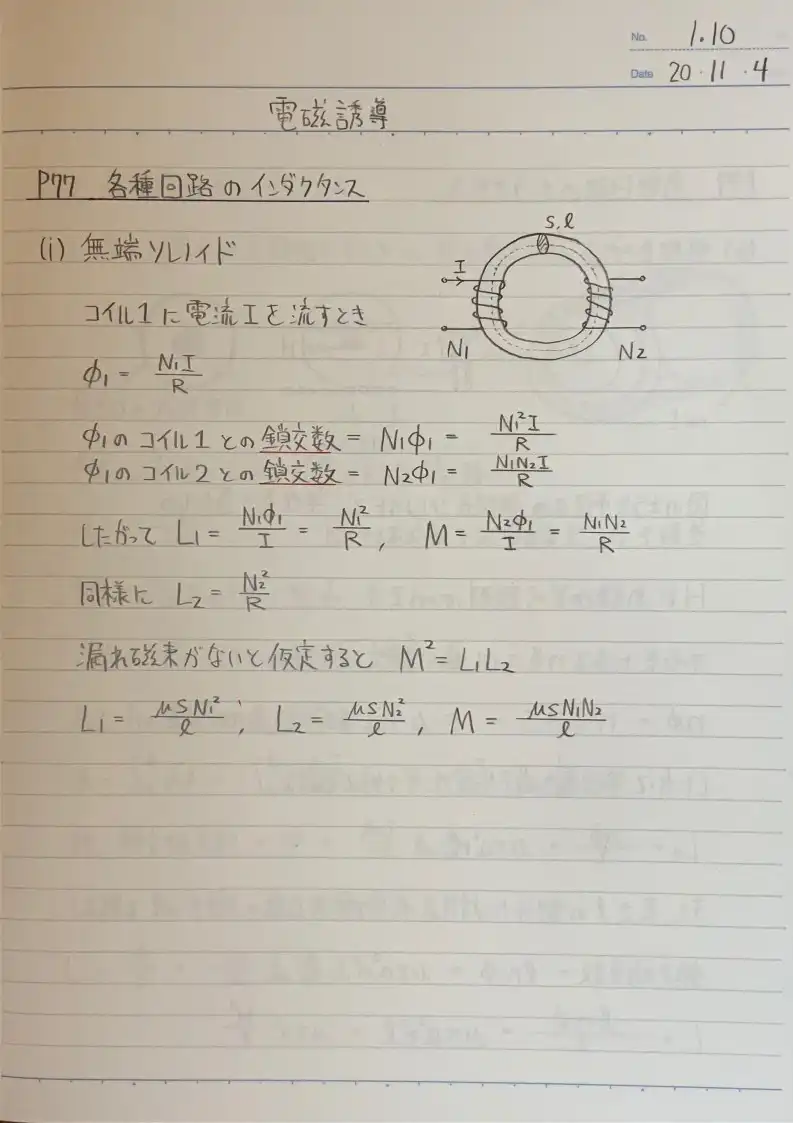 No. 1.10
Date 20・11・4
電磁誘導
P77 各種回路のインダクタンス
(i) 無端ソレノイド
S, ℓ
I
N₁ N₂
コイル1に電流Iを流すとき
φ₁ = N₁I/R
φ₁のコイル1との鎖交数 = N₁φ₁ = N₁²I/R
φ₁のコイル2との鎖交数 = N₂φ₁ = N₁N₂I/R
したがって L₁ = N₁φ₁/I = N₁²/R, M = N₂φ₁/I = N₁N₂/R
同様に L₂ = N₂²/R
漏れ磁束がないと仮定すると M² = L₁L₂
L₁ = μSN₁²/ℓ, L₂ = μSN₂²/ℓ, M = μSN₁N₂/ℓ